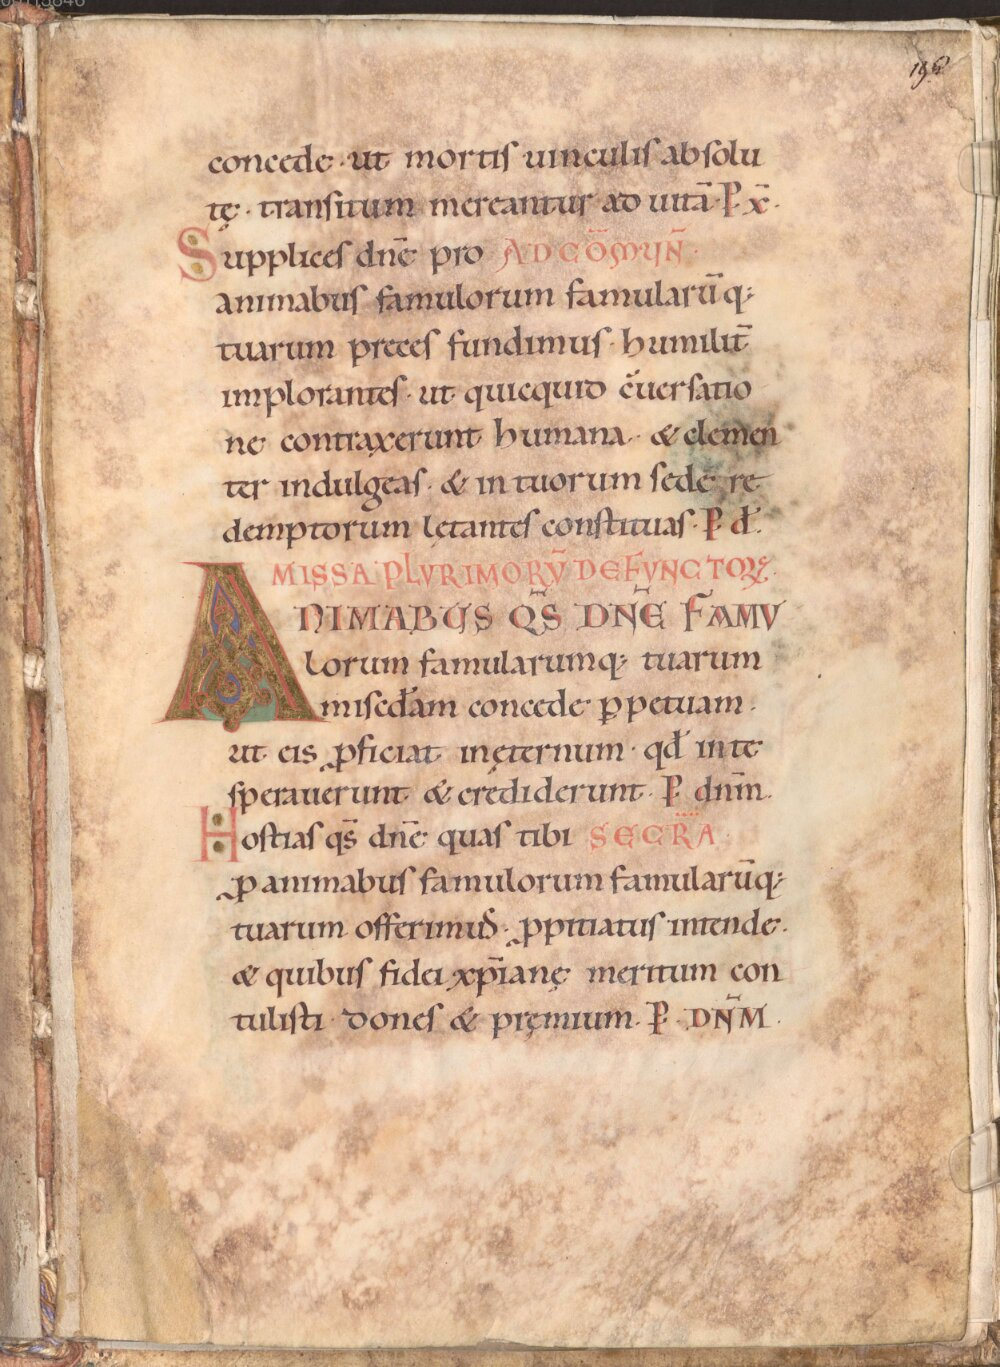 196
concede · ut mortis uinculis absolu
tę · transitum mereantur ad uitā · P xp̄ ·
Supplices dn̄e pro AD CŌMUN̄ ·
animabus famulorum famularūq;
tuarum preces fundimus · humilit̄
implorantes · ut quicquid c̄uersatio
ne contraxerunt humana · & clemen
ter indulgeas · & in tuorum sede re
demptorum lętantes constituas · P d̄ ·
MISSA PLVRIMORŪ DEFVNCTOꝜ ·
ANIMABUS QS̄ DN̄E FAMV
lorum famularumq; tuarum
misc̄dam concede ꝑpetuam ·
ut eis ꝓficiat inęternum · qd̄ in te
sperauerunt & crediderunt · P dn̄m ·
Hostias qs̄ dn̄e quas tibi SECR̄A ·
ꝓ animabus famulorum famularūq;
tuarum offerimus · ꝓpitiatus intende ·
& quibus fidei xp̄ianę meritum con
tulisti · dones & pręmium · P · DN̄M ·